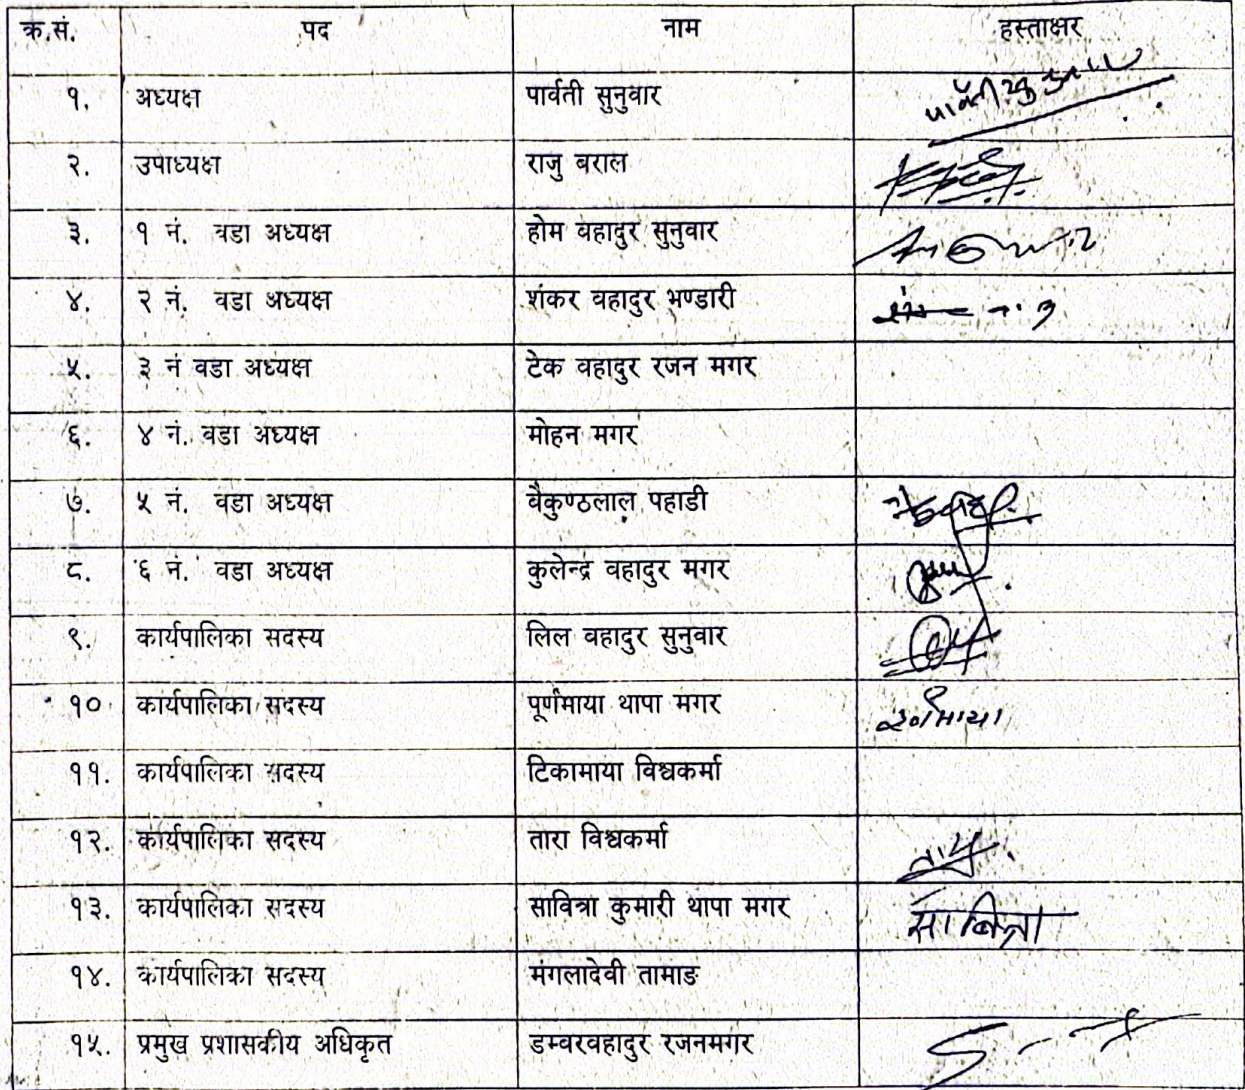 क्र.सं. पद नाम हस्ताक्षर
१. अध्यक्ष पार्वती सुनुवार पार्वती सुनुवार
२. उपाध्यक्ष राजु बराल
३. १ नं. वडा अध्यक्ष होम बहादुर सुनुवार
४. २ नं. वडा अध्यक्ष शंकर वहादुर भण्डारी
५. ३ नं वडा अध्यक्ष टेक वहादुर रजन मगर
६. ४ नं. वडा अध्यक्ष मोहन मगर
७. ५ नं. वडा अध्यक्ष वैकुण्ठलाल पहाडी
८. ६ नं. वडा अध्यक्ष कुलेन्द्र वहादुर मगर
९. कार्यपालिका सदस्य लिल वहादुर सुनुवार
१० कार्यपालिका सदस्य पूर्णमाया थापा मगर
११. कार्यपालिका सदस्य टिकामाया विश्वकर्मा
१२. कार्यपालिका सदस्य तारा विश्वकर्मा
१३. कार्यपालिका सदस्य सावित्रा कुमारी थापा मगर सावित्रा
१४. कार्यपालिका सदस्य मंगलादेवी तामाङ
१५. प्रमुख प्रशासकीय अधिकृत डम्वरवहादुर रजनमगर